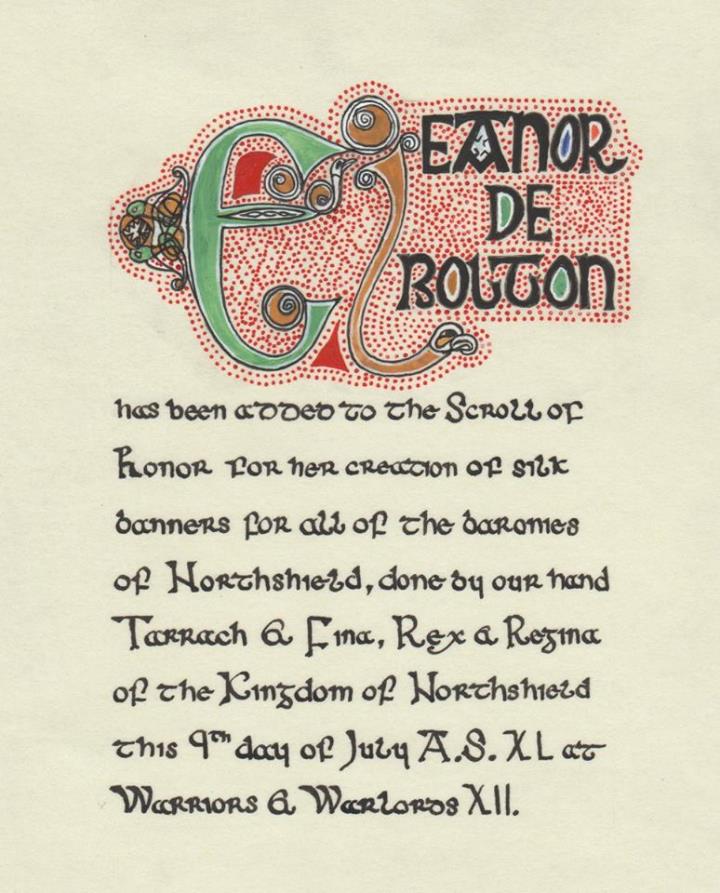 ElEANOR
DE
BOLTON
has been added to the Scroll of
Honor for her creation of silk
banners for all of the baronies
of Northshield, done by our hand
Tarrach & Fina, Rex & Regina
of the Kingdom of Northshield
this 9th day of July A.S. XL at
Warriors & Warlords XII.